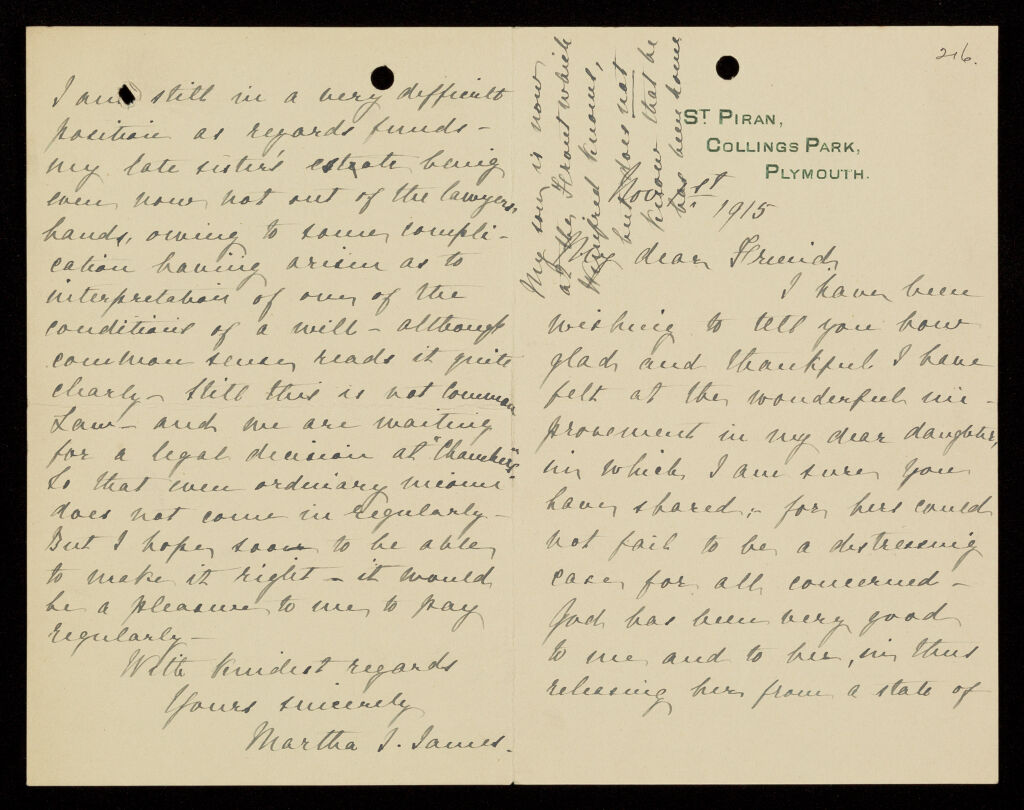 216.
ST PIRAN,
COLLINGS PARK,
PLYMOUTH.
Nov 1st
1915
My dear Friend
I have been
wishing to tell you how
glad and thankful I have
felt at the wonderful im-
provement in my dear daughter,
in which I am sure you
have shared; for hers could
not fail to be a distressing
case for all concerned -
God has been very good
to me and to her, in thus
releasing her from a state of
My son is now
at the Front which
Winifred knows,
but does not
know that he
has been home
I am still in a very difficult
position as regards funds -
my late sister's estate being
even now not out of the lawyers'
hands, owing to some compli-
cation having arisen as to
interpretation of one of the
conditions of a will - although
common sense reads it quite
clearly - Still this is not Common
Law - and we are waiting
for a legal decision at "Chambers".
So that even ordinary income
does not come in regularly -
But I hope soon to be able
to make it right - it would
be a pleasure to me to pay
regularly -
With kindest regards
Yours sincerely
Martha J. James.